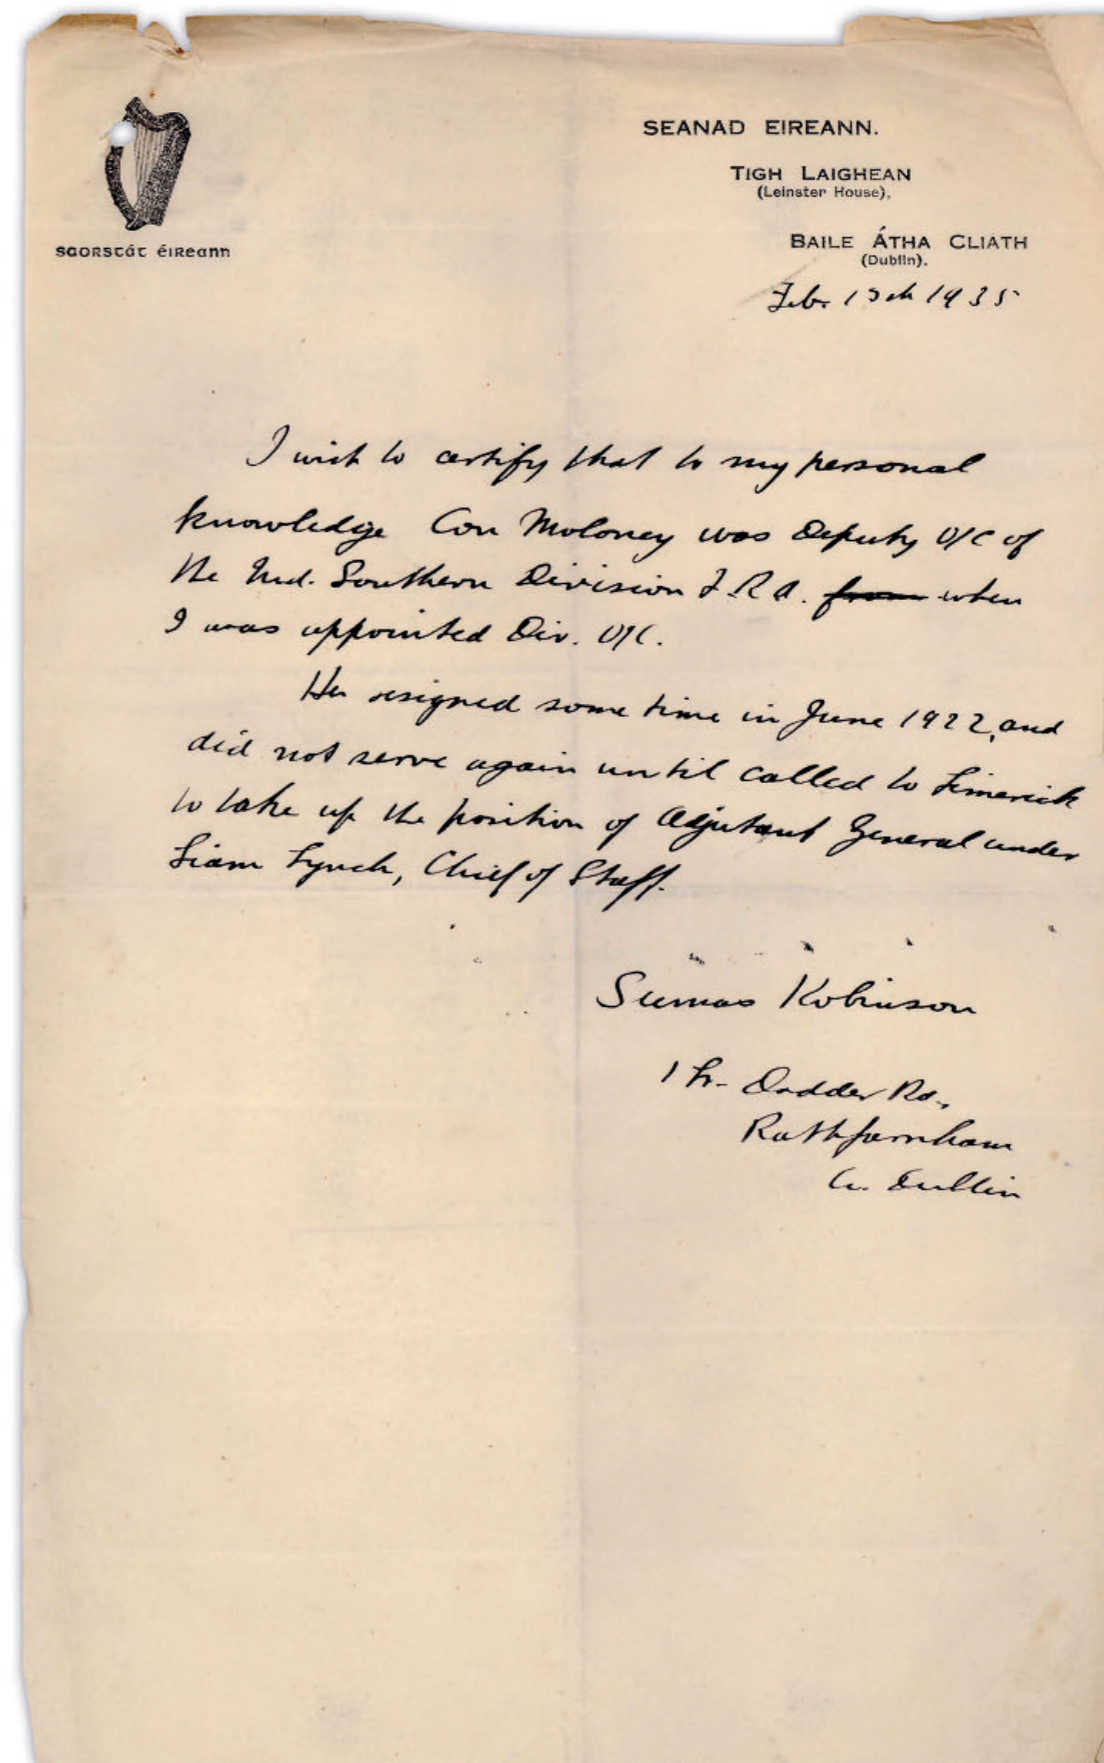 SEANAD EIREANN.
TIGH LAIGHEAN
(Leinster House),
BAILE ÁTHA CLIATH
(Dublin).
saorstát éireann
Feb. 13th 1935
I wish to certify that to my personal
knowledge Con Moloney was Deputy O/C of
the 2nd. Southern Division I.R.A. from when
I was appointed Div. O/C.
He resigned some time in June 1922, and
did not serve again until called to Limerick
to take up the position of Adjutant General under
Liam Lynch, Chief of Staff.
Seumas Robinson
Dodder Rd.,
Rathfarnham
Co. Dublin